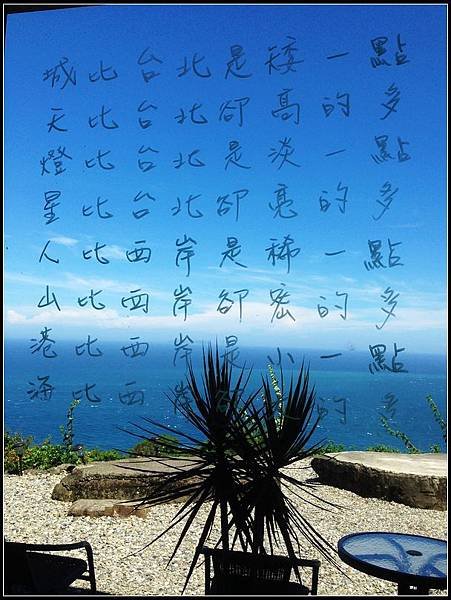 城比台北是矮一點
天比台北卻高的多
燈比台北是淡一點
星比台北卻亮的多
人比西岸是稀一點
山比西岸卻密的多
港比西岸是小一點
海比西岸卻大的多